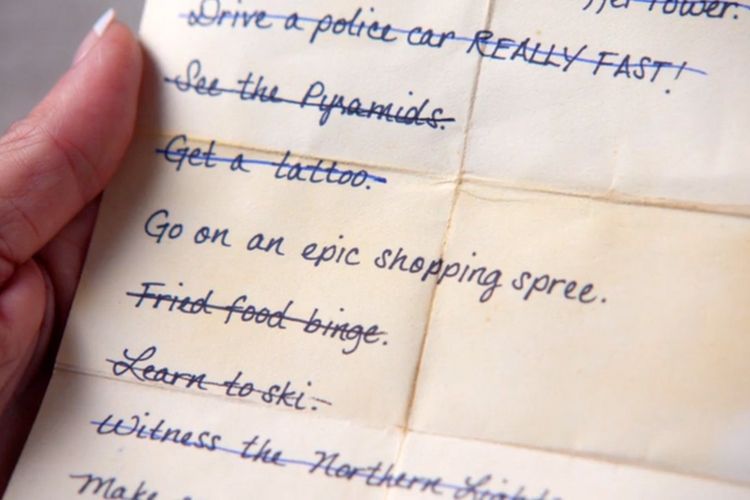 Tower.
Drive a police car REALLY FAST!
See the Pyramids.
Get a tattoo.
Go on an epic shopping spree.
Fried food binge.
Learn to ski.
Witness the Northern Lights
Make